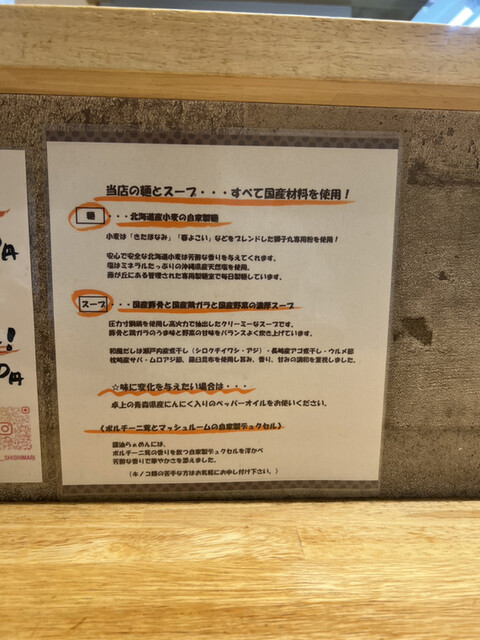 当店の麺とスープ・・・すべて国産材料を使用！
麺 ・・・北海道産小麦の自家製麺
小麦は「きたほなみ」「春よこい」などをブレンドした獅子丸専用粉を使用！
安心で安全な北海道小麦は芳醇な香りを与えてくれます。
塩はミネラルたっぷりの沖縄県産天然塩を使用。
藤が丘にある管理された専用製麺室で毎日製麺しています。
スープ ・・・国産豚骨と国産鶏ガラと国産野菜の濃厚スープ
圧力寸胴鍋を使用し高火力で抽出したクリーミーなスープです。
豚骨と鶏ガラのうま味と野菜の甘味をバランスよく炊き上げています。
和風だしは瀬戸内産煮干し（シロクチイワシ・アジ）・長崎産アゴ煮干し・ウルメ節
枕崎産サバ・ムロアジ節、羅臼昆布を使用し旨み、香り、甘みの調和を重視しました。
☆味に変化を与えたい場合は・・・
卓上の青森県産にんにく入りのペッパーオイルをお使いください。
《ポルチーニ茸とマッシュルームの自家製デュクセル》
醤油らぁめんには、
ポルチーニ茸の香りを放つ自家製デュクセルを浮かべ
芳醇な香りで華やかさを添えました。
（キノコ類の苦手な方はお気軽にお申し付け下さい。）
円
！
0円
_SHISHIMARU